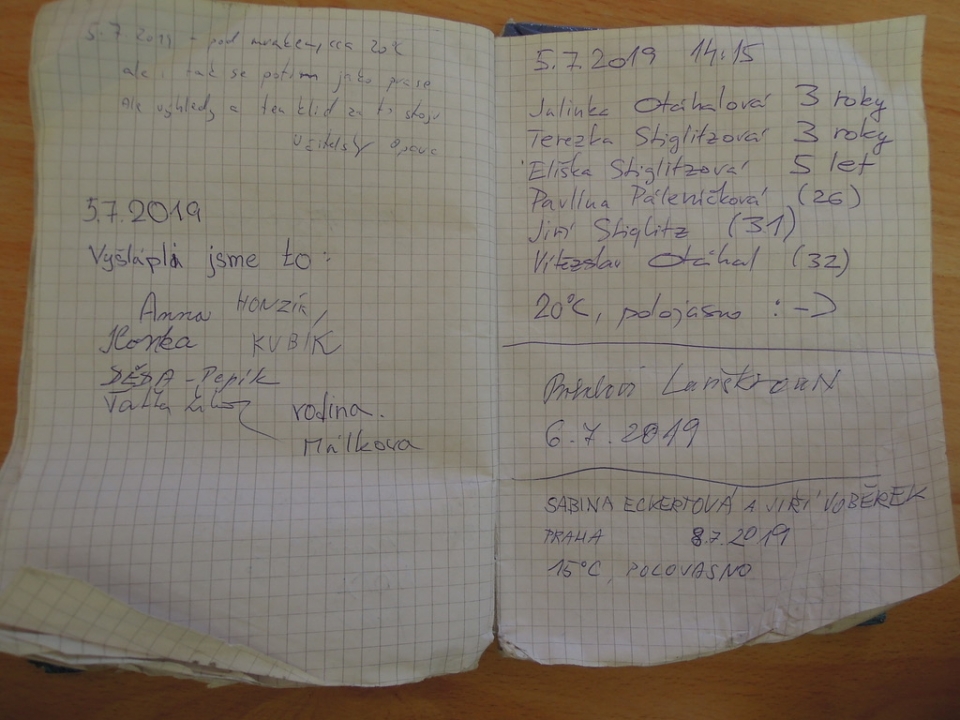 5.7 2019 - pod mrakem, cca 20°C
ale i tak se potím jako prase
Ale výhledy a ten klid za to stojí
Opava
5.7.2019
Vyšlápli jsme to:
Anna HONZÍK,
KUBÍK
DĚDA - Pepik
rodina.
Málkova
5.7.2019 14:15
Julinka Otáhalová 3 roky
Terezka Stiglitzová 3 roky
Eliška Stiglitzová 5 let
Pavlína Páleničková (26)
Jiří Stiglitz (31)
Vítězslav Otáhal (32)
20°C, polojasno :-)
6.7.2019
SABINA ECKERTOVÁ A JIŘÍ VOBĚREK
PRAHA 8.7.2019
15°C, POLOJASNO